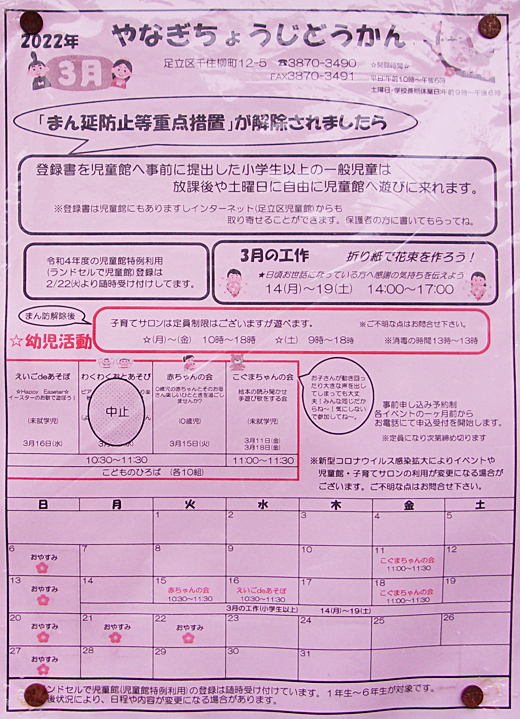 2022年
3月
やなぎちょうじどうかん
足立区千住柳町12-5 ☎3870-3490
FAX3870-3491
☆開館時間☆
平日:午前10時～午後6時
土曜日・学校長期休業日:午前9時～午後6時
「まん延防止等重点措置」が解除されましたら
登録書を児童館へ事前に提出した小学生以上の一般児童は
放課後や土曜日に自由に児童館へ遊びに来れます。
※登録書は児童館にもありますしインターネット(足立区児童館)からも
取り寄せることができます。保護者の方に書いてもらってね。
令和4年度の児童館特例利用
(ランドセルで児童館)登録は
2/22㈫より随時受け付けしてます。
3月の工作 折り紙で花束を作ろう!
★日頃お世話になっている方へ感謝の気持ちを伝えよう
14(月)～19(土) 14:00～17:00
まん防解除後
☆幼児活動
子育てサロンは定員制限はございますが遊べます。 ※ご不明な点はお問合せ下さい。
☆(月)～(金) 10時～18時 ☆(土) 9時～18時 ※消毒の時間13時～13時
えいごdeあそぼ
☆Happy Easter☆
イースターのお歌で遊ぼう!
(未就学児)
3月16日(水)
わくわくおとあそび
中止
赤ちゃんの会
0歳児の赤ちゃんとそのお母さん楽しいひとときを過ごしませんか?
(0歳児)
3月15日(火)
こぐまちゃんの会
絵本の読み聞かせ
手遊び歌をする会
(未就学児)
3月11日(金)
3月18日(金)
10:30～11:30
11:00～11:30
こどものひろば (各10組)
お子さんが動き回ったり大きな声を出してしまっても大丈夫!みんな同じだからね～!気にしないで参加してね～。
事前申し込み予約制
各イベントの一ヶ月前から
お電話にて申込受付を開始します。
※定員になり次第締め切ります
※新型コロナウイルス感染拡大によりイベントや
児童館・子育てサロンの利用が変更になる場合が
ございます。ご不明な点はお問合せ下さい。
日 月 火 水 木 金 土
1 2 3 4 5
6 おやすみ 7 8 9 10 11 こぐまちゃんの会 11:00～11:30 12
13 おやすみ 14 15 赤ちゃんの会 10:30～11:30 16 えいごdeあそぼ 10:30～11:30 17 18 こぐまちゃんの会 11:00～11:30 19
3月の工作(小学生以上) 14(月)～19(土)
20 おやすみ 21 おやすみ 22 おやすみ 23 24 25 26
27 おやすみ 28 29 30 31
ンドセルで児童館(児童館特例利用)の登録は随時受け付けています。1年生～6年生が対象です。
後状況により、日程や内容が変更になる場合があります。